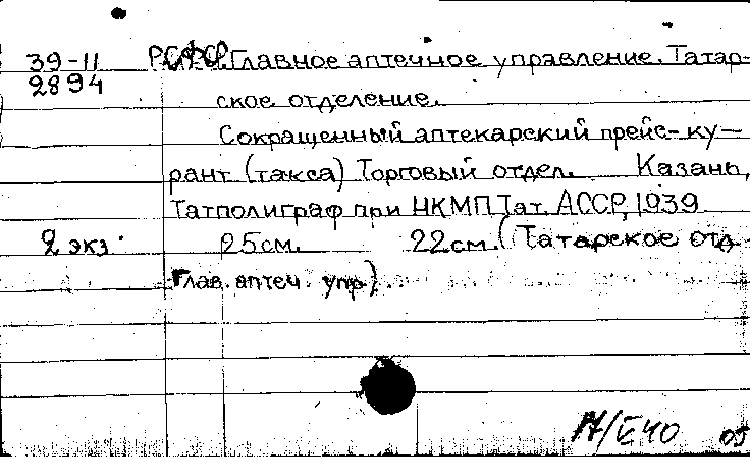 39-11 РСФСР. Главное аптечное управление. Татар-
2894 ское отделение.
Сокращенный аптекарский прейс-ку-
рант (такса) Торговый отдел. Казань,
Татполиграф при НКМП Тат. АССР, 1939
2 экз. 25см. 22см. (Татарское отд.
Глав. аптеч. упр)